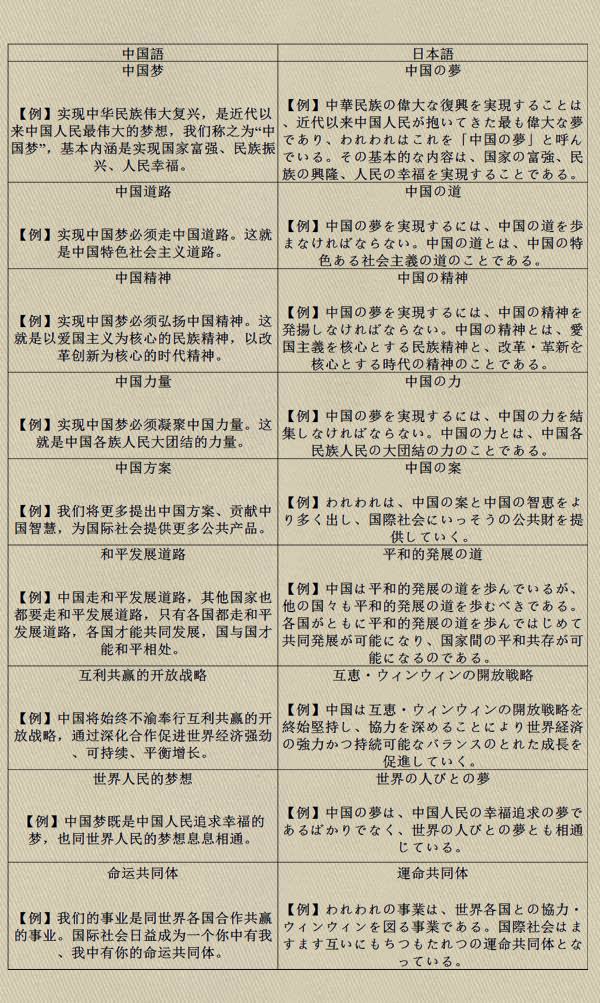 中国語
日本語
中国梦
【例】实现中华民族伟大复兴，是近代以
来中国人民最伟大的梦想，我们称之为“中
国梦”，基本内涵是实现国家富强、民族振
兴、人民幸福。
中国の夢
【例】中華民族の偉大な復興を実現することは
、近代以来中国人民が抱いてきた最も偉大な夢
であり、われわれはこれを「中国の夢」と呼ん
でいる。その基本的な内容は、国家の富強、民
族の興隆、人民の幸福を実現することである。
中国道路
【例】实现中国梦必须走中国道路。这就
是中国特色社会主义道路。
中国の道
【例】中国の夢を実現するには、中国の道を歩
まなければならない。中国の道とは、中国の特
色ある社会主義の道のことである。
中国精神
【例】实现中国梦必须弘扬中国精神。这
就是以爱国主义为核心的民族精神，以改
革创新为核心的时代精神。
中国の精神
【例】中国の夢を実現するには、中国の精神を
発揚しなければならない。中国の精神とは、愛
国主義を核心とする民族精神と、改革・革新を
核心とする時代の精神のことである。
中国力量
【例】实现中国梦必须凝聚中国力量。这
就是中国各族人民大团结的力量。
中国の力
【例】中国の夢を実現するには、中国の力を結
集しなければならない。中国の力とは、中国各
民族人民の大団結の力のことである。
中国方案
【例】我们将更多提出中国方案、贡献中
国智慧，为国际社会提供更多公共产品。
中国の案
【例】われわれは、中国の案と中国の智恵をよ
り多く出し、国際社会にいっそうの公共財を提
供していく。
和平发展道路
【例】中国走和平发展道路，其他国家也
都要走和平发展道路，只有各国都走和平
发展道路，各国才能共同发展，国与国才
能和平相处。
平和的発展の道
【例】中国は平和的発展の道を歩んでいるが、
他の国々も平和的発展の道を歩むべきである。
各国がともに平和的発展の道を歩んではじめて
共同発展が可能になり、国家間の平和共存が可
能になるのである。
互利共赢的开放战略
【例】中国将始终不渝奉行互利共赢的开
放战略，通过深化合作促进世界经济强劲
、可持续、平衡增长。
互恵・ウィンウィンの開放戦略
【例】中国は互恵・ウィンウィンの開放戦略を
終始堅持し、協力を深めることにより世界経済
の強力かつ持続可能なバランスのとれた成長を
促進していく。
世界人民的梦想
【例】中国梦既是中国人民追求幸福的
梦，也同世界人民的梦想息息相通。
世界の人びとの夢
【例】中国の夢は、中国人民の幸福追求の夢で
あるばかりでなく、世界の人びとの夢とも相通
じている。
命运共同体
【例】我们的事业是同世界各国合作共赢
的事业。国际社会日益成为一个你中有我
、我中有你的命运共同体。
運命共同体
【例】われわれの事業は、世界各国との協力・
ウィンウィンを図る事業である。国際社会はま
すます互いにもちつもたれつの運命共同体とな
っている。